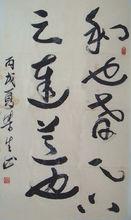 和也者天下
之達道也
丙戌夏